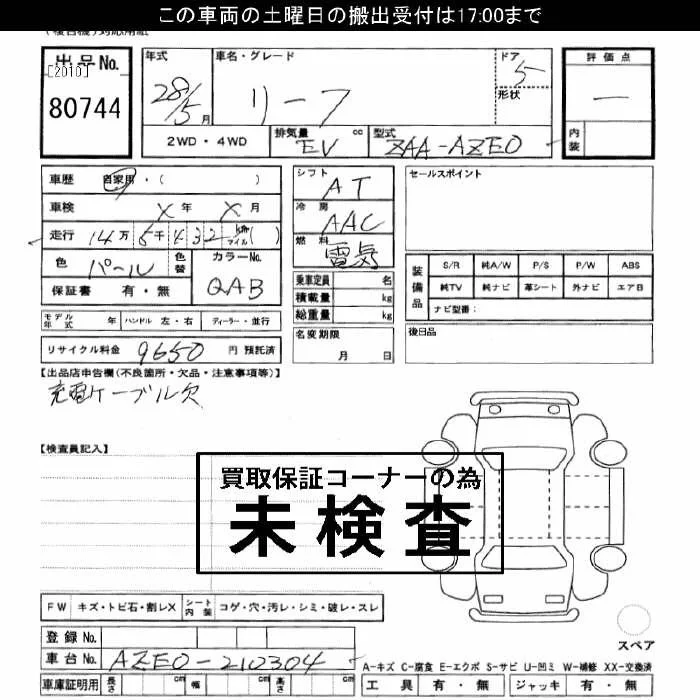 この車両の土曜日の搬出受付は17:00まで
出品No.
[2010]
80744
年式
28/5月
車名・グレード
リーフ
ドア
5
形状
評価点
—
内装
2WD・4WD
排気量 EV cc
型式 ZAA-AZEO
車歴 自家用・( )
車検 X年 X月
走行 14万5千432km マイル( )
色 パール
色替
カラーNo. QAB
保証書 有・無
シフト AT
冷房 AAC
燃料 電気
乗車定員 名
積載量 kg
総重量 kg
セールスポイント
装備品
S/R 純A/W P/S P/W ABS
純TV 純ナビ 革シート 外ナビ エアB
ナビ型番:
モデル年式 年 ハンドル 左・右 ディーラー・並行
名変期限
月 日
後日品
リサイクル料金 9650 円 預託済
【出品店申告欄(不良箇所・欠品・注意事項等)】
充電ケーブル欠
【検査員記入】
買取保証コーナーの為
未検査
FW キズ・トビ石・割レX シート内装 コゲ・穴・汚レ・シミ・破レ・スレ
スペア
登録No.
車台No. AZEO-210304
A-キズ C-腐食 E-エクボ S-サビ U-凹ミ W-補修 XX-交換済
車庫証明用 長さ cm 幅 cm 高さ cm
工具 有・無 ジャッキ 有・無